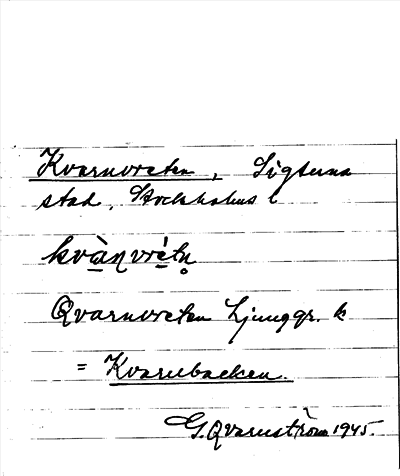 Kvarnvreten, Sigtuna
stad, Stockholms l
kvànvrétn̥
Qvarnvreten Ljunggr. k
= Kvarnbacken.
G. Qvarnström 1945.